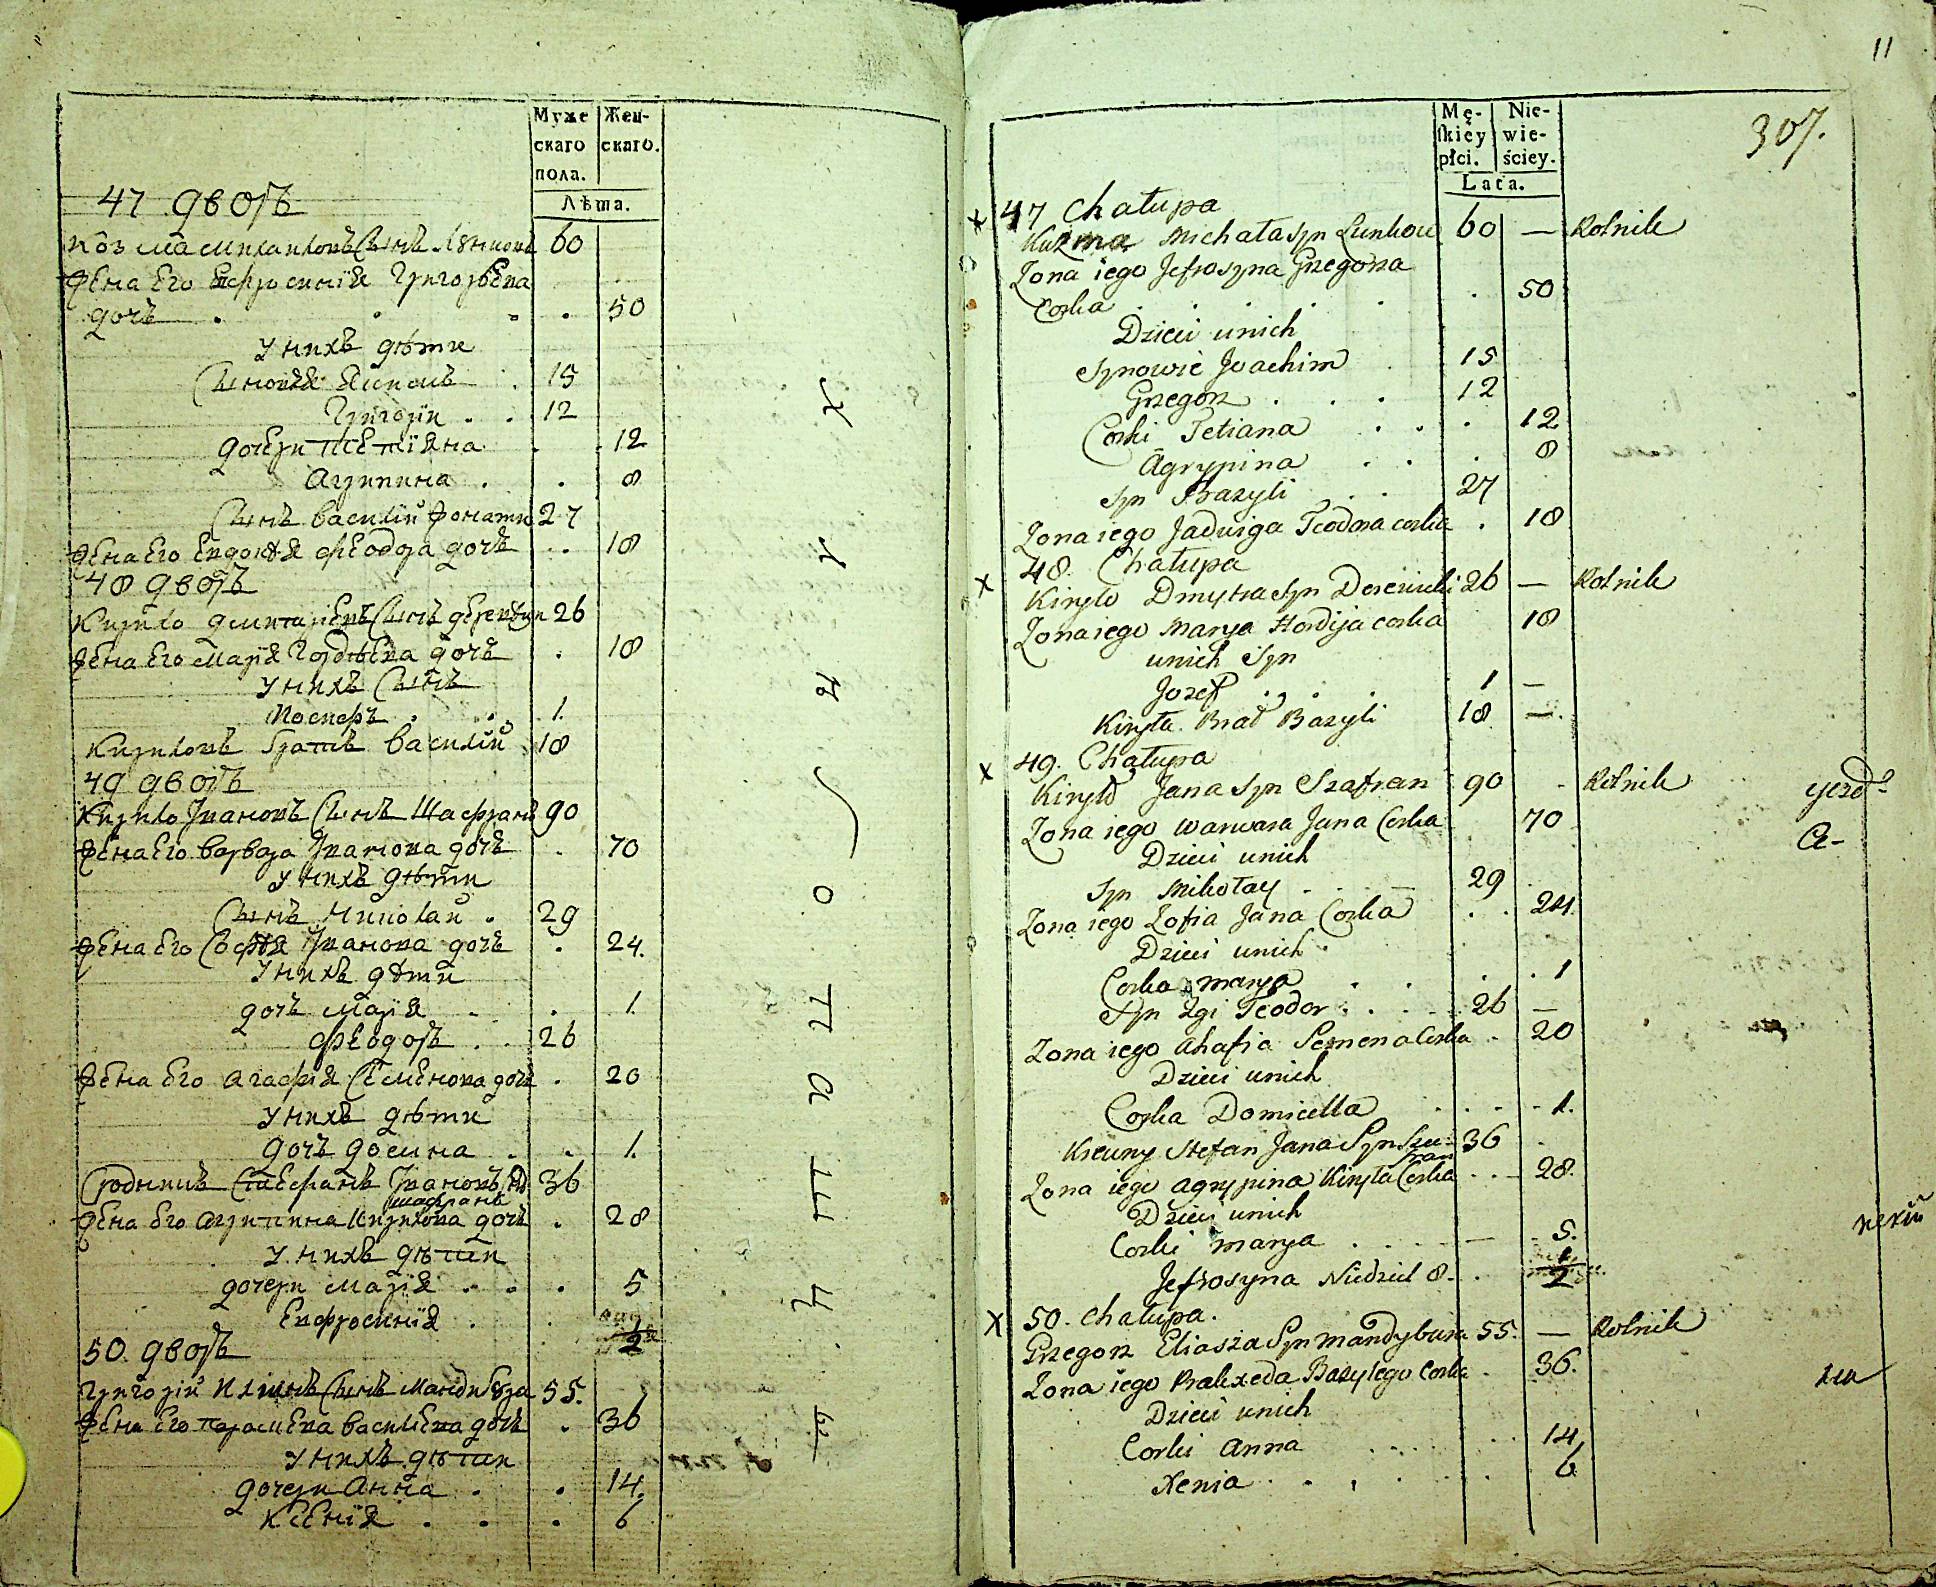 Муже
скаго
пола.
Жен-
скаго.
Лѣта.
47 дворъ
Козма Михаиловъ Сынъ Лѫнковъ 60
Жена Его Ефросинїя Григорьева
дочь . . . . 50
У нихъ дѣти
Сыновья Якимъ . 15
Григорїи . . 12
дочери Тетїяна . . 12
Агрипина . . 8
Сынъ Василїй женатъ 27
Жена Его Евдокїя Феодора дочь . . 18
48 дворъ
Кирило Димитрїевъ Сынъ 26
Жена Его Марїя Гордѣева дочь . 18
У нихъ Сынъ
Иосифъ . . 1.
Кириловъ братъ Василїй 18
49 дворъ
Кирило Ивановъ Сынъ Шафранъ 90
Жена Его Варвара Иванова дочь . 70
У нихъ дѣти
Сынъ Николай . 29
Жена Его Софїя Иванова дочь . 24.
У нихъ дѣти
дочь Марїя . . 1.
Феодоръ . . 26
Жена Его Агафїя Семенова дочь . 20
У нихъ дѣти
дочь Домина . . 1.
Сродникъ Стефанъ Ивановъ Сынъ 36
шафранъ
Жена Его Агрипина Кирилова дочь . 28
У нихъ дѣти
дочери Марїя . . . 5
Евфросинїя . . 1/2
50. дворъ
Григорїй Илїинъ Сынъ Мандибура 55.
Жена Его Параскева Василева дочь . 36
У нихъ дѣти
дочери Анна . . 14.
Ксенїя . . . 6
11
307.
Mę-
skiey
płci.
Nie-
wie-
ściey.
Lata.
x 47 Chałupa
Kuzma Michała Syn Lunkow 60 — Rolnik
Zona iego Jefroszyna Grzegorza
Corka . . . . . 50
Dzieci unich
Synowie Joachim . 15
Grzegorz . . . 12
Corki Tetiana . . . 12
Agrypina . . . 8
Syn Bazyli . . 27
Zona iego Jadwiga Teodora corka . 18
x 48. Chałupa
Kiryło Dmytra Syn 26 — Rolnik
Zona iego Marya Hordija corka 18
unich Syn
Jozef . . . 1 —
Kiryła Brat Bazyli 18 —.
x 49. Chałupa
Kiryło Jana Syn Szafran 90 - Rolnik
Zona iego Warwara Jana Corka 70
Dzieci unich
Syn Mikołay . . . 29
Zona iego Zofia Jana Corka . . 24.
Dzieci unich
Corka Marya . . . . 1
Syn 2gi Teodor . . . 26 —
Zona iego Ahafia Semena Corka . 20
Dzieci unich
Corka Domicella . . . . 1.
Krewny Stefan Jana Syn Sza- 36
fran
Zona iego Agrypina Kiryła Corka . . . 28.
Dzieci unich
Corki Marya . . . — . 5.
Jefrosyna Niedziel 8. . 1/2
x 50. Chałupa.
Grzegorz Eliasza Syn Mandybura 55. — Rolnik
Zona iego Praxeda Bazylego Corka . 36.
Dzieci unich
Corki Anna . . . . 14
Xenia . . . . . 6